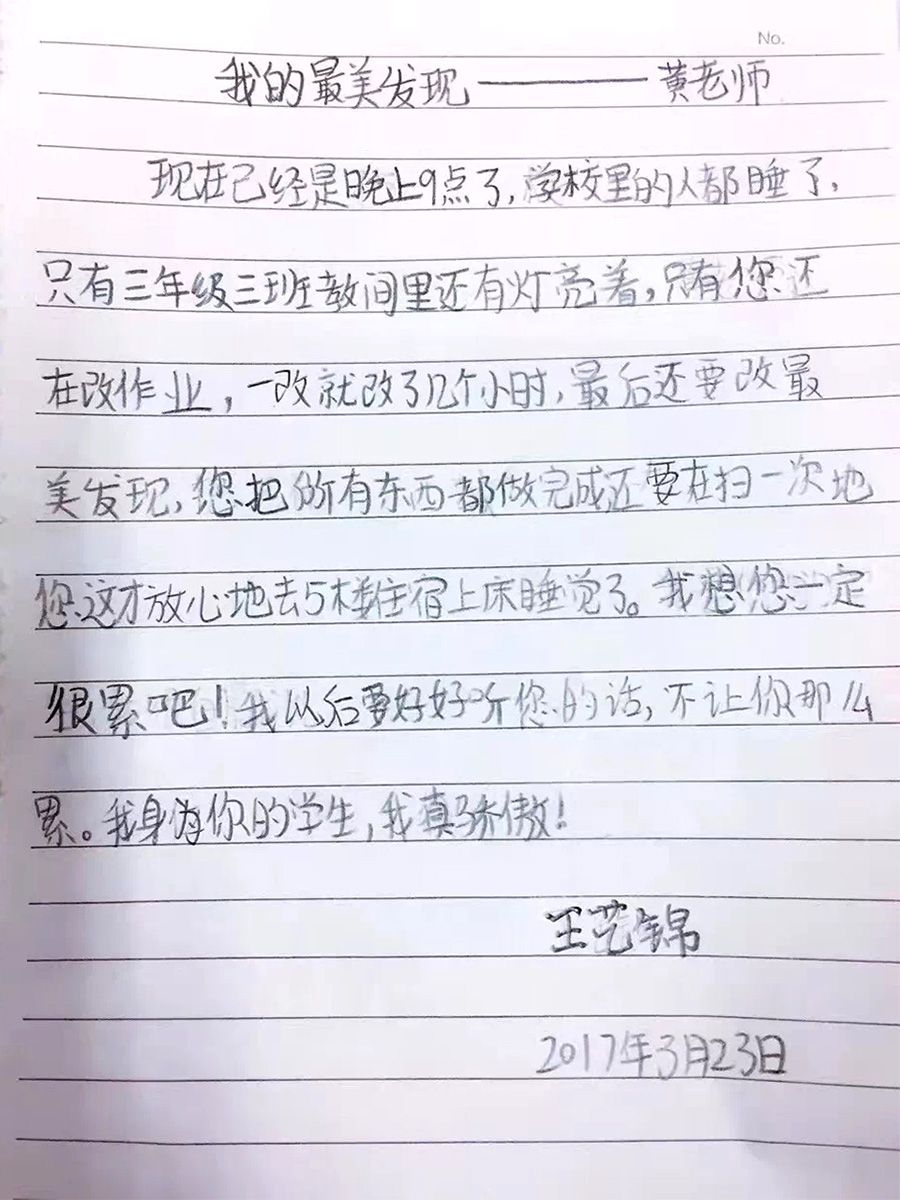 No.
我的最美发现————黄老师
现在已经是晚上9点了,学校里的人都睡了,
只有三年级三班教间里还有灯亮着,只有您还
在改作业,一改就改了几个小时,最后还要改最
美发现,您把所有东西都做完成还要在扫一次地
您这才放心地去5楼住宿上床睡觉了。我想您一定
很累吧!我以后要好好听您的话,不让你那么
累。我身为你的学生,我真骄傲!
王艺锦
2017年3月23日